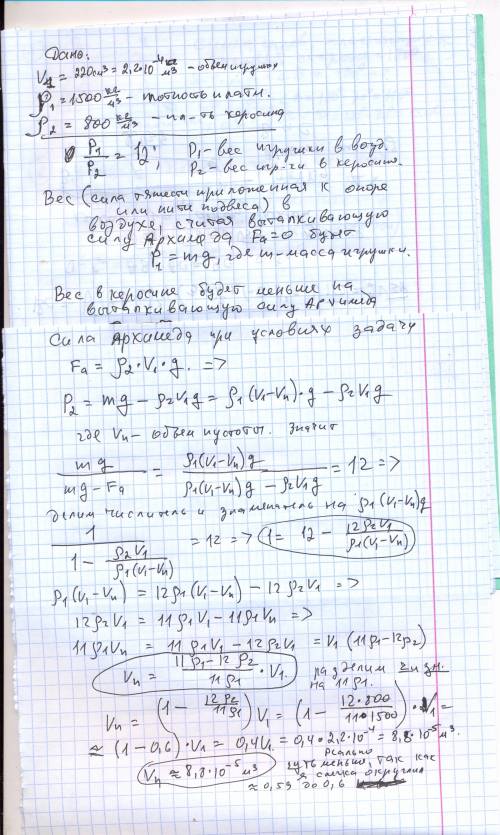 Дано:
V₁ = 220см³ = 2,2·10⁻⁴ кг/м³ – объем игрушки
ρ₁ = 1500 кг/м³ – плотность пластм.
ρ₂ = 800 кг/м³ – пл-ть керосина
P₁/P₂ = 12; P₁ – вес игрушки в возд.
P₂ – вес игр-ки в керосине.
Вес (сила тяжести приложенная к опоре
или нити подвеса) в
воздухе, считая выталкивающую
силу Архимеда Fа=0 будет
P₁ = mg, где m – масса игрушки.
Вес в керосине будет меньше на
выталкивающую силу Архимеда
Сила Архимеда при условиях задачи
Fа = ρ₂·V₁·g. =>
P₂ = mg – ρ₂V₁g = ρ₁(V₁–Vп)·g – ρ₂V₁g
где Vп – объем пустоты. Значит
mg/(mg – Fа) = ρ₁(V₁–Vп)g/(ρ₁(V₁–Vп)g – ρ₂V₁g) = 12 =>
делим числитель и знаменатель на ρ₁(V₁–Vп)g
1/(1 – ρ₂V₁/(ρ₁(V₁–Vп))) = 12 => 1 = 12 – 12ρ₂V₁/(ρ₁(V₁–Vп))
ρ₁(V₁–Vп) = 12ρ₁(V₁–Vп) – 12ρ₂V₁ =>
12ρ₂V₁ = 11ρ₁V₁ – 11ρ₁Vп =>
11ρ₁Vп = 11ρ₁V₁ – 12ρ₂V₁ = V₁(11ρ₁–12ρ₂)
Vп = (11ρ₁–12ρ₂)/(11ρ₁)·V₁. разделим ч и зн.
на 11ρ₁.
Vп = (1 – 12ρ₂/11ρ₁)V₁ = (1 – 12·800/11·1500)·V₁ =
≈ (1–0,6)·V₁ = 0,4V₁ = 0,4·2,2·10⁻⁴ = 8,8·10⁻⁵ м³.
Vп ≈ 8,8·10⁻⁵ м³
реально
чуть меньше, так как
я слегка округлил
≈ 0,59 до 0,6